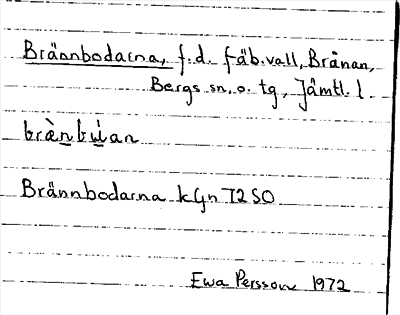 Brännbodarna, f.d. fäb.vall, Brånan,
Bergs sn. o. tg, Jämtl. l.
brȁnbu̇an
Brännbodarna kGn 72 SO
Ewa Persson 1972